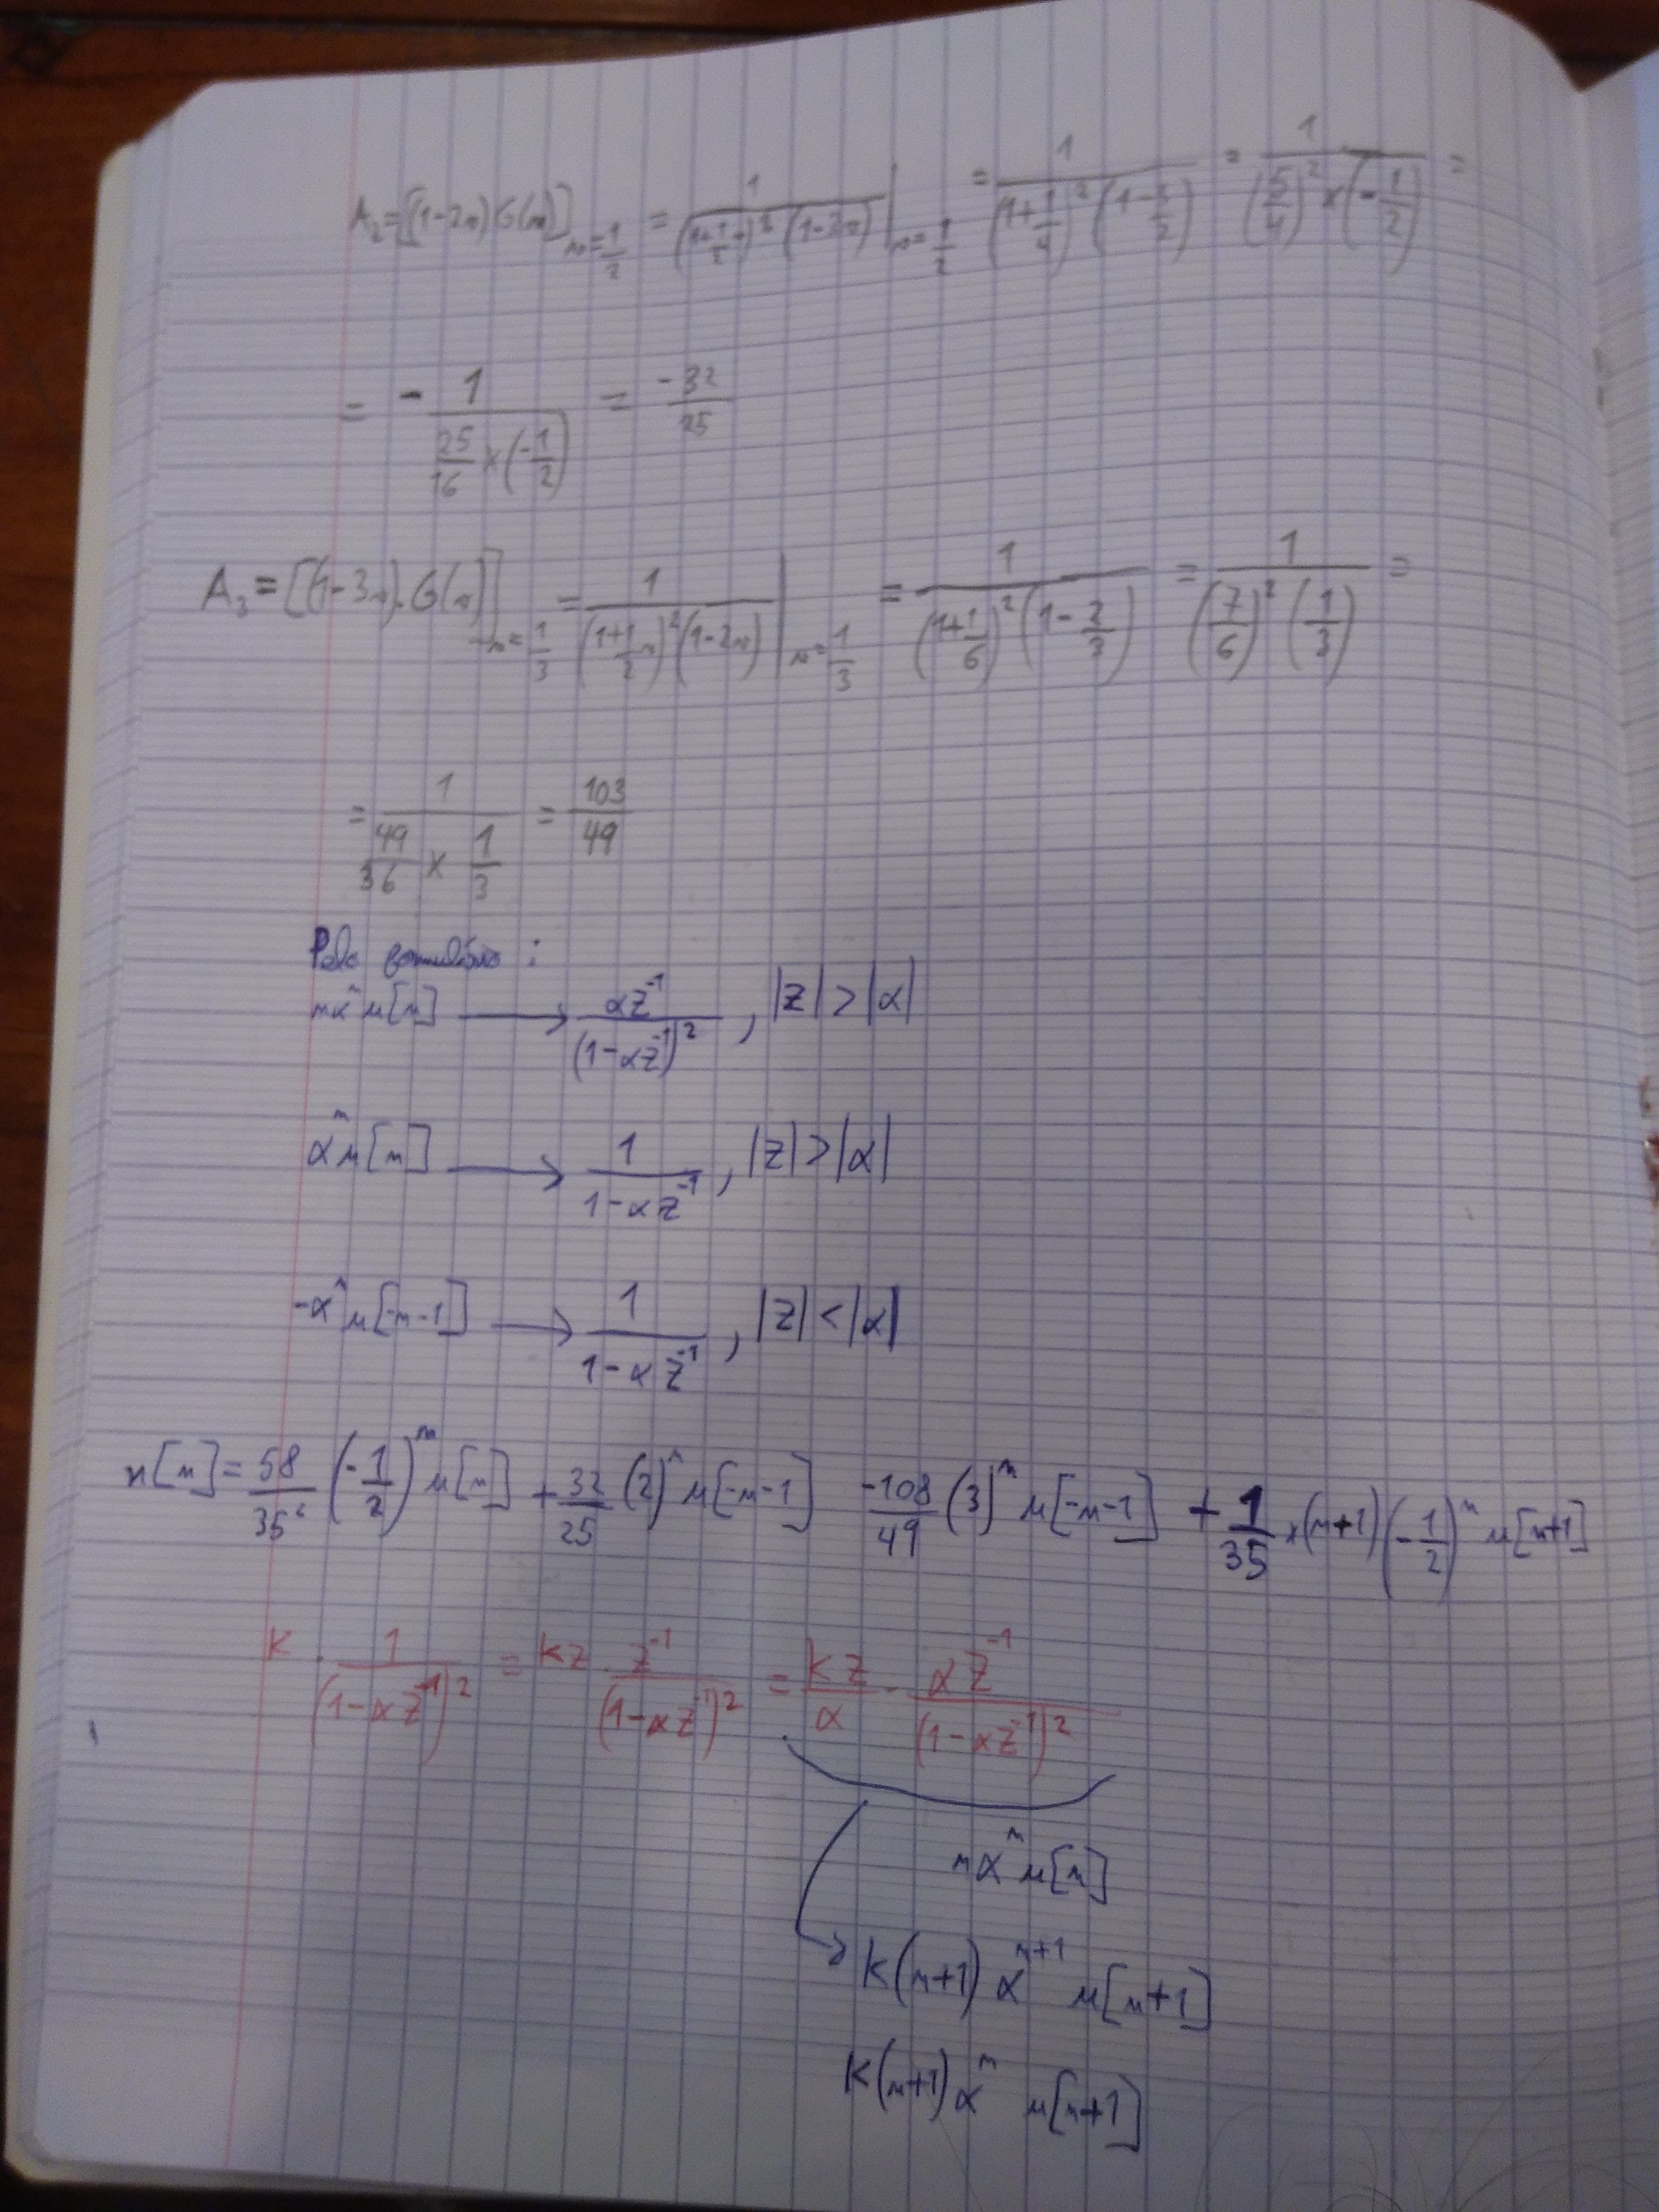 A₂ = [(1-2v) G(v)]_{v=1/2} = 1/((1+1/2 v)² (1-3v)) |_{v=1/2} = 1/((1+1/4)² (1-3/2)) = 1/((5/4)² × (-1/2)) =
= - 1/(25/16 × (-1/2)) = -32/25
A₃ = [(1-3v).G(v)]_{v=1/3} = 1/((1+1/2 v)² (1-2v)) |_{v=1/3} = 1/((1+1/6)² (1-2/3)) = 1/((7/6)² (1/3)) =
= 1/(49/36 × 1/3) = 103/49
Pelo formulário :
nαⁿ u[n] ⟶ αz⁻¹/(1-αz⁻¹)² , |z| > |α|
αⁿ u[n] ⟶ 1/(1-αz⁻¹) , |z| > |α|
-αⁿ u[-n-1] ⟶ 1/(1-αz⁻¹) , |z| < |α|
x[n] = 58/35² (-1/2)ⁿ u[n] + 32/25 (2)ⁿ u[-n-1] -108/49 (3)ⁿ u[-n-1] + 1/35 × (n+1) (-1/2)ⁿ u[n+1]
K . 1/(1-αz⁻¹)² = Kz . z⁻¹/(1-αz⁻¹)² = Kz/α . αz⁻¹/(1-αz⁻¹)²
nαⁿ u[n]
K(n+1) αⁿ⁺¹ u[n+1]
K(n+1) αⁿ u[n+1]